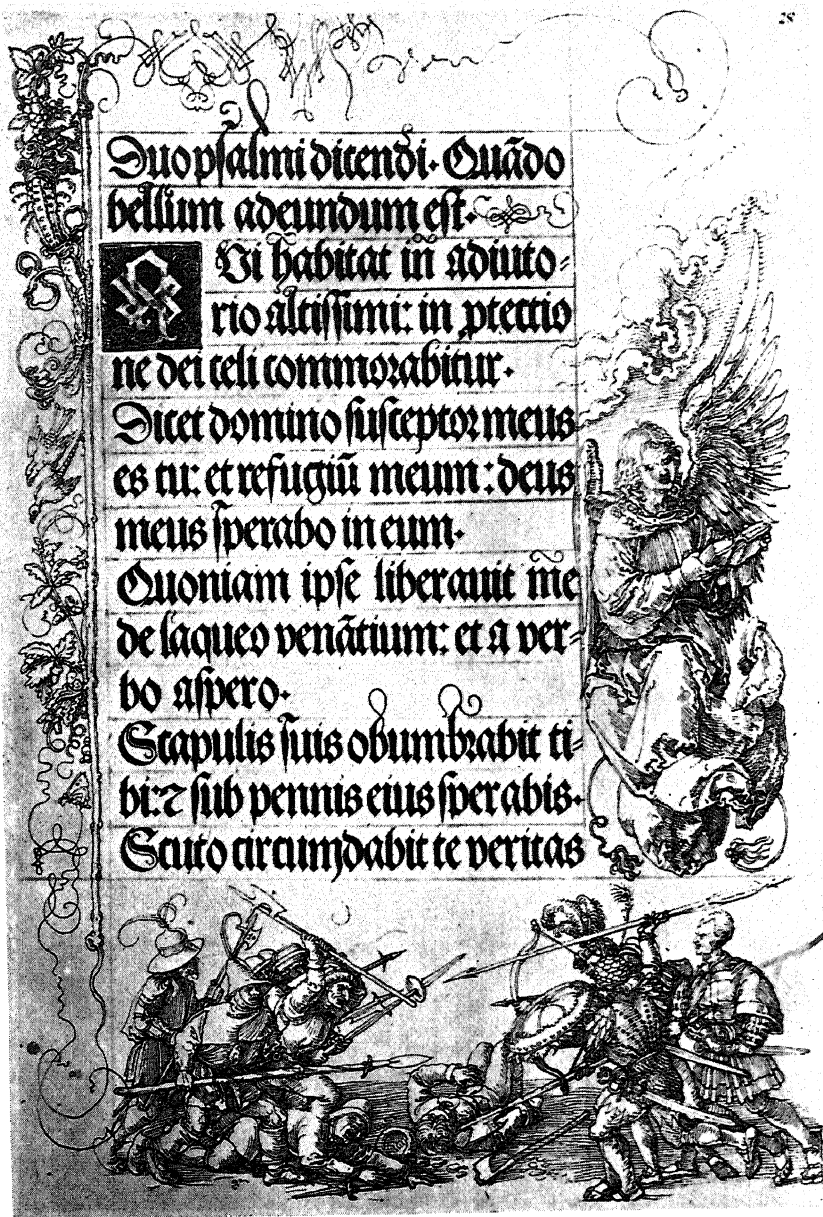 28
Duo psalmi dicendi. Quādo
bellum adeundum est.
QVi habitat in adiuto⸗
rio altissimi: in ꝓtectio
ne dei celi commorabitur.
Dicet domino susceptor meus
es tu: et refugiū meum: deus
meus sperabo in eum.
Quoniam ipse liberauit me
de laqueo venātium: et a ver⸗
bo aspero.
Scapulis suis obumbrabit ti⸗
bi: ⁊ sub pennis eius sperabis.
Scuto circumdabit te veritas